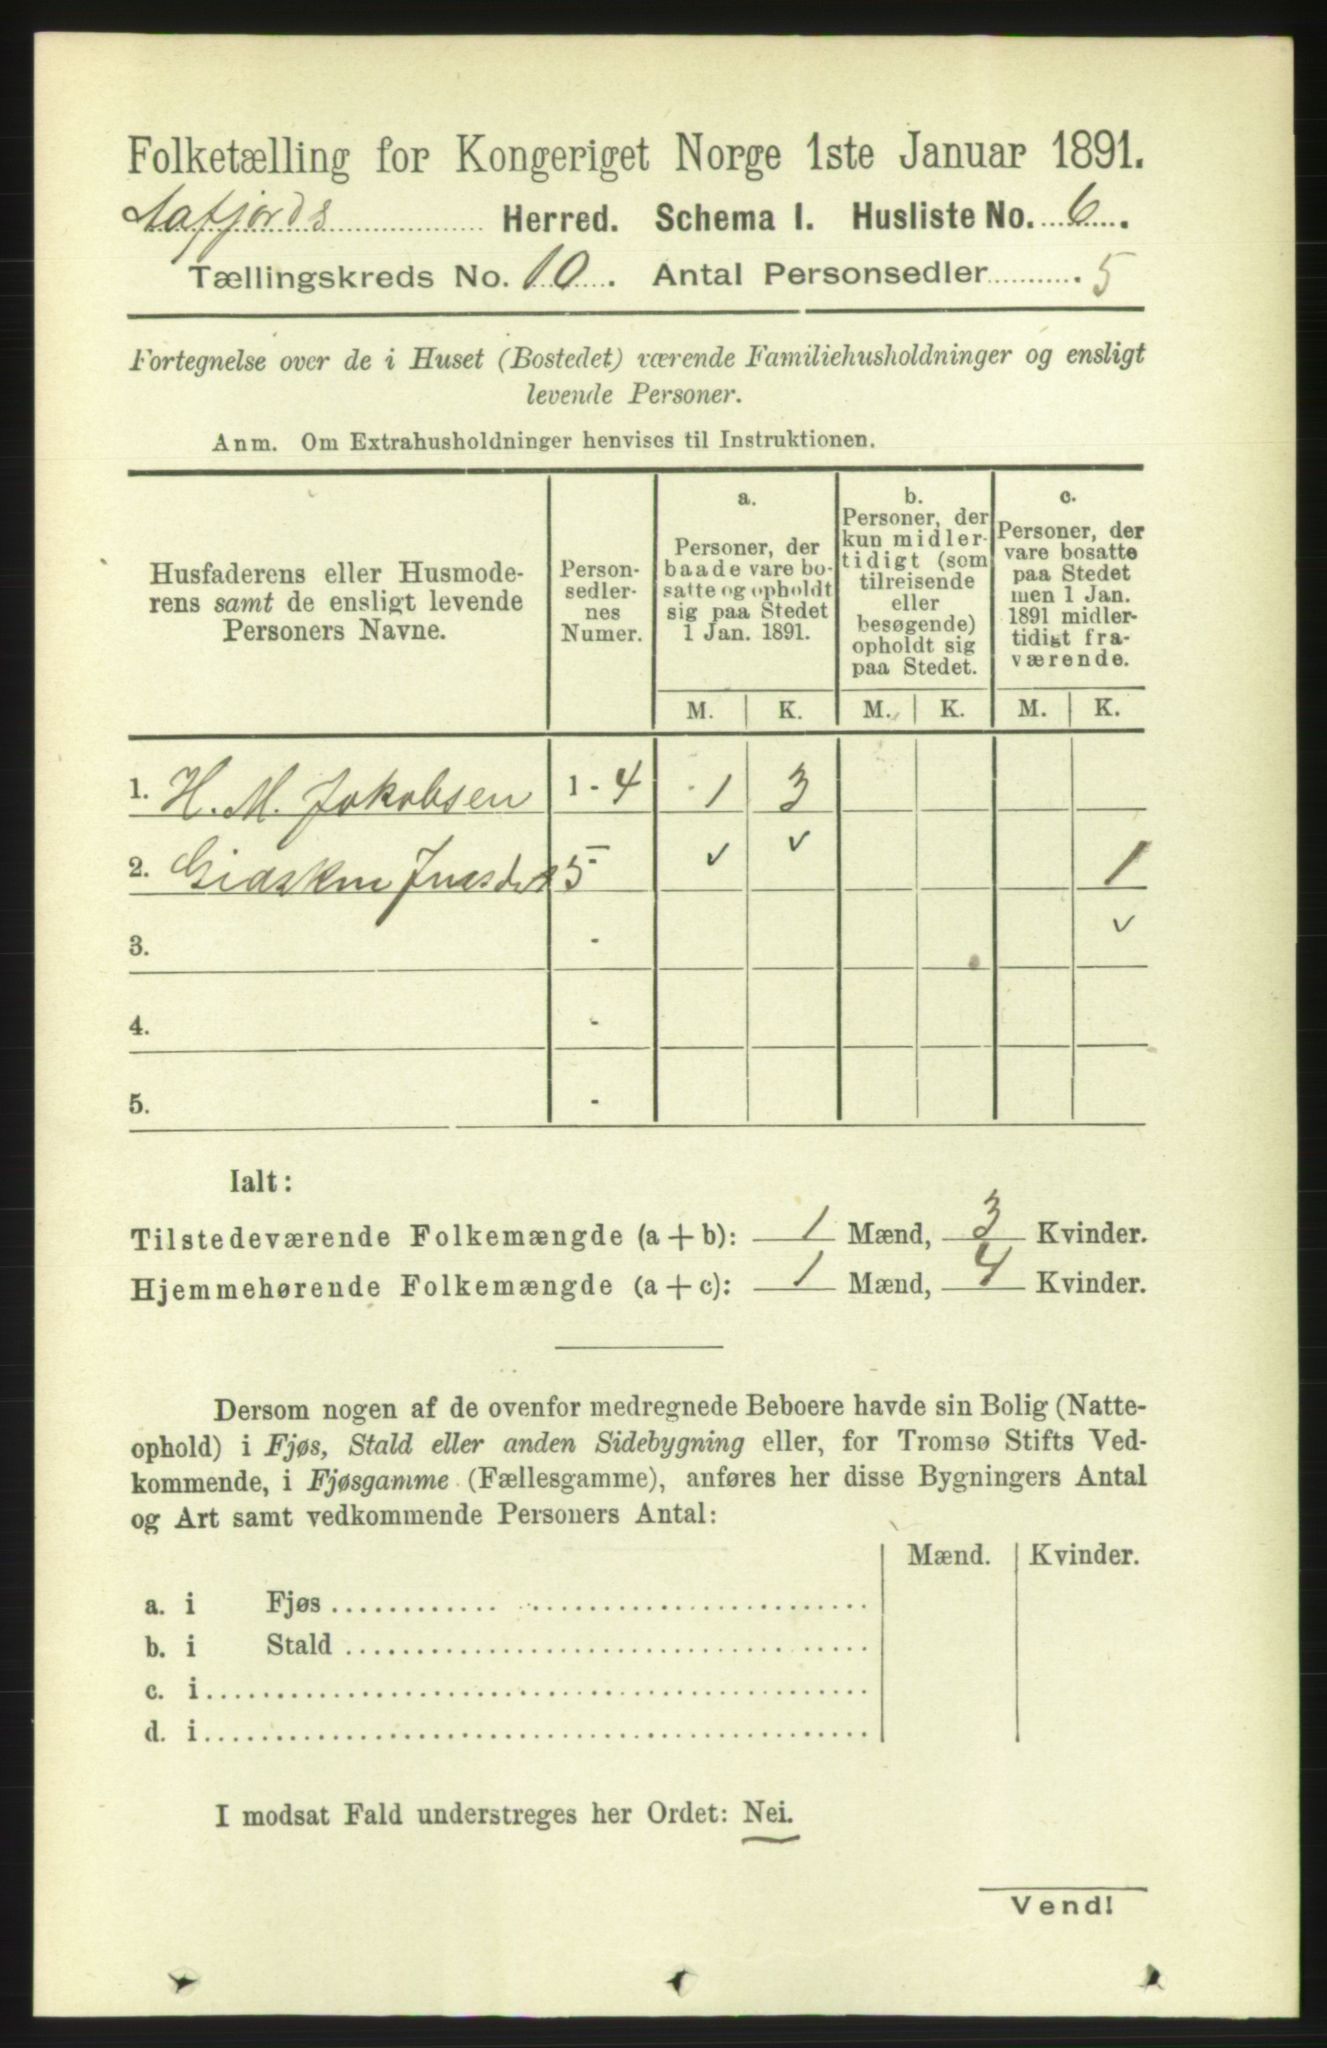 Folketælling for Kongeriget Norge 1ste Januar 1891.
Aafjords Herred. Schema I. Husliste No. 6.
Tællingskreds No. 10. Antal Personsedler 5
Fortegnelse over de i Huset (Bostedet) værende Familiehusholdninger og ensligt
levende Personer.
Anm. Om Extrahusholdninger henvises til Instruktionen.
Husfaderens eller Husmode-
rens samt de ensligt levende
Personers Navne.
Person-
sedler-
nes
Numer.
a.
Personer, der
baade vare bo-
satte og opholdt
sig paa Stedet
1 Jan. 1891.
b.
Personer, der
kun midler-
tidigt (som
tilreisende
eller
besøgende)
opholdt sig
paa Stedet.
c.
Personer, der
vare bosatte
paa Stedet
men 1 Jan.
1891 midler-
tidigt fra-
værende.
M. K. M. K. M. K.
1. H. M. Jakobsen 1 - 4 1 3
2. 5 ✓ ✓ 1
3. - ✓
4. -
5. -
Ialt:
Tilstedeværende Folkemængde (a + b): 1 Mænd, 3 Kvinder.
Hjemmehørende Folkemængde (a + c): 1 Mænd, 4 Kvinder.
Dersom nogen af de ovenfor medregnede Beboere havde sin Bolig (Natte-
ophold) i Fjøs, Stald eller anden Sidebygning eller, for Tromsø Stifts Ved-
kommende, i Fjøsgamme (Fællesgamme), anføres her disse Bygningers Antal
og Art samt vedkommende Personers Antal:
Mænd. Kvinder.
a. i Fjøs
b. i Stald
c. i
d. i
I modsat Fald understreges her Ordet: Nei.
Vend!